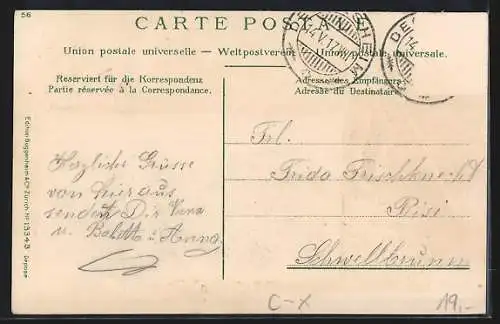 56
CARTE POSTALE
Union postale universelle — Weltpostverein — Union postale universelle.
Reserviert für die Korrespondenz
Partie réservée à la Correspondance.
Adresse des Empfängers
Adresse du Destinataire
Herzliche Grüsse
von hier aus
sendet Dir Vera
u. Babette u. Anna
Frl.
Frida Frischknecht
Risi
Schwellbrunn
C-X
19,-